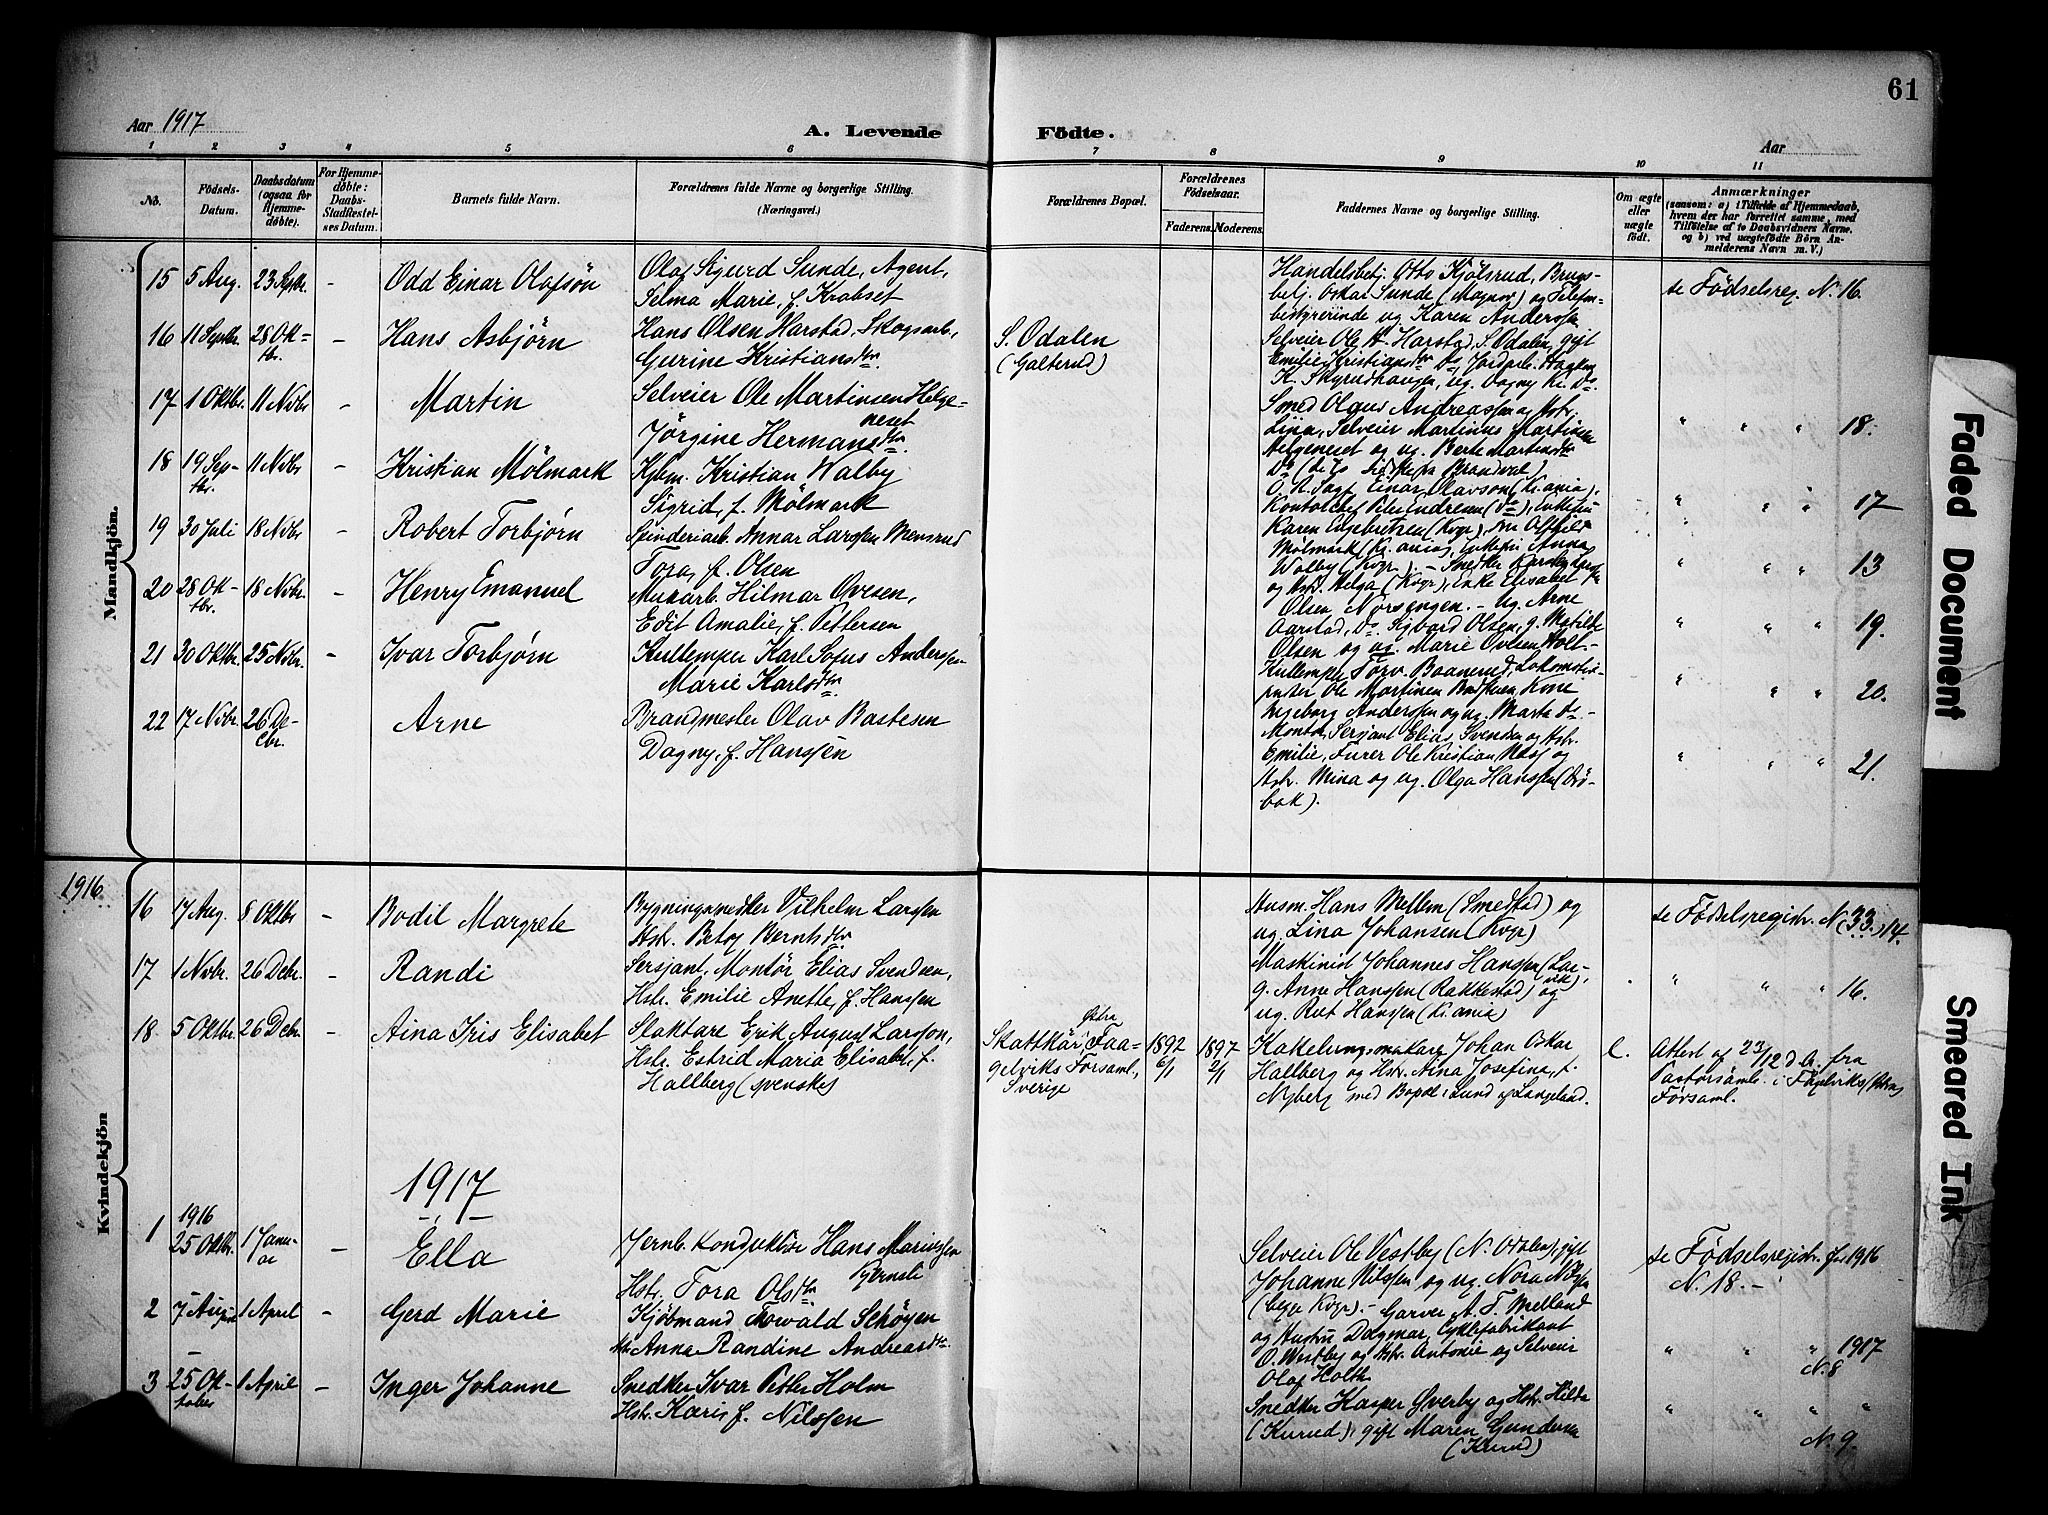 61
Aar 1917
A. Levende Födte.
Aar
1 2 3 4 5 6 7 8 9 10 11
No. Födsels-Datum. Daabsdatum (ogsaa for Hjemmedøbte). For Hjemmedøbte: Daabs-Stadfæstelses Datum. Barnets fulde Navn. Forældrenes fulde Navne og borgerlige Stilling. (Næringsvei.) Forældrenes Bopæl. Forældrenes Födselsaar. Faderens. Moderens. Faddernes Navne og borgerlige Stilling. Om ægte eller uægte født. Anmærkninger (saasom: a) i Tilfælde af Hjemmedaab, hvem der har forrettet samme, med Tilføielse af to Daabsvidners Navne. og b) ved uægtefödte Börn Anmelderens Navn m. V.)
Mandkjön.
15 5 Aug. 23 Septbr. - Odd Einar Olafsön
Olaf Sigurd Sunde, Agent,
Selma Marie, f. Krabset
Handelsbetj. Otto Kjölsrud, Brugs-
betj. Oskar Sunde (Magnor) og Telefon-
bestyrerinde ug Karen Anderssen
se Födselsreg. N. 16.
16 11 Septbr. 28 Ok-
tbr. - Hans Asbjörn
Hans Olsen Harstad, Skogsarb.,
Gurine Kristiansdtr.
S. Odalen
(Galterud)
Selveier Ole H. Harstad, S. Odalen, gift
Emilie Kristiansdtr Do, Jordarb. Haaken
K. Skyrudhaugen, ug. Dagny Kr. Do.
" " " 18.
17 1 Oktbr. 11 Novbr - Martin
Selveier Ole Martinsen Helge-
neset
Jörgine Hermansdtr.
Smed Olaus Andreassen og Hstr.
Lina, Selveier Martinus Martinsen
Helgeneset og ug. Berte Martinsdtr
Do
18 19 Sep-
tbr. 11 Novbr - Kristian Mölmark
Kjbm. Kristian Walby
Sigrid, f. Mölmark
Einar Olavson (Kr.ania),
Karen Engebretsen (Kvgr),
Mölmark (Kr.ania), Anna
Walby (Kvgr).
" " " 17
19 30 Juli 18 Novbr - Robert Torbjörn
Spinderiarb. Annar Larssen Mensrud
Tora, f. Olsen
og Hstr. Helga (Kvgr), Enke Elisabet
Olsen, Norsengen.
" " " 13
20 28 Ok-
tbr. 18 Novbr. - Henry Emanuel
Murarb. Hilmar Ovesen,
Edit Amalie, f. Pettersen
ug. Arne
Aarstad, Do. Sigvard Olsen, g. Matilde
Olsen og ug. Marie Ovesen Holt
" " " 19.
21 30 Oktbr. 25 Novbr. - Ivar Torbjörn
Kullemper Karl Sofus Anderssen
Marie Karlsdtr.
Kullemper Torv. Baanerud, Lokomotiv-
Ole Martinsen Kone
Ingeborg Anderssen og ug. Marta Do -
" " " 20.
22 17 Novbr. 26 De-
cbr. Arne
Brandmester Olav Bastesen
Dagny, f. Hanssen
Montör, Sersjant Elias Svendsen og Hstr.
Emilie, Furer Ole Kristian Næss og
Hstr. Mina og ug. Olga Hanssen (Drö-
bak).
" " " 21.
1916
Kvindekjön
16 17 Aug. 8 Oktbr - Bodil Margrete
Bygningssnedker Vilhelm Larssen
Hstr. Betzy Berntsdtr
Husm. Hans Mellem (Smedstad) og
ug. Lina Johansen (Kvgr)
se Födselsregistr. N (33.) 14.
17 1 Novbr. 26 Decbr. - Randi
Sersjant, Montör Elias Svendsen,
Hstr. Emilie Anette, f. Hanssen
Maskinist Johannes Hanssen (Lar-
vik),
g. Anne Hanssen (Rakkestad) og
ug. Rut Hanssen (Kr.ania)
" " " 16.
18 5 Oktbr. 26 Decbr. - Aina Iris Elisabet
Slaktare Erik August Larsson,
Hstr. Estrid Maria Elisabet, f.
Hallberg (svenske)
Skattkärr, Östra Faa-
gelviks Församl.,
Sverige
1892
6/1
1897
2/1
Kakelungsmakare Johan Oskar
Hallberg og Hstr. Aina Josefina, f.
Nyberg med Bopæl i Lund af Langeland.
Attest af 23/12 d. A. fra
Pastorsämb. i Fågelviks Östra
Församl.
1917
1 1916
25 Oktbr. 1 Janu-
ar - Ella
Jernb. konduktör Hans Mariussen
Bjernli
Hstr. Tora Olsdtr
Selveier Ole Vestby (N. Odalen), gift
Johanne Nilssen og ug. Nora Nilssen
(begge Kvgr). -
se Födselsregistr. for 1916
N. 18. -
2 7 August 1 April - Gerd Marie
Kjöbmand Towald Schöyen
Hstr. Anna Randine Andreasdtr.
Garver A. F. Melland
og Hustru Dagmar, Cyklefabrikant
O. Westby og Hstr. Antonie og Selveier
Olaf Holth.
" " " 1917
N. 8
3 25 Ok-
tober 1 April - Inger Johanne
Snedker Ivar Petter Holm
Hstr. Kari, f. Nilssen
Snedker Kasper Överby og Hstr. Hilda
(Kurud), gift Maren Gundersen
(Kurud)
" " " "
N. 9.
Faded Document
Smeared Ink